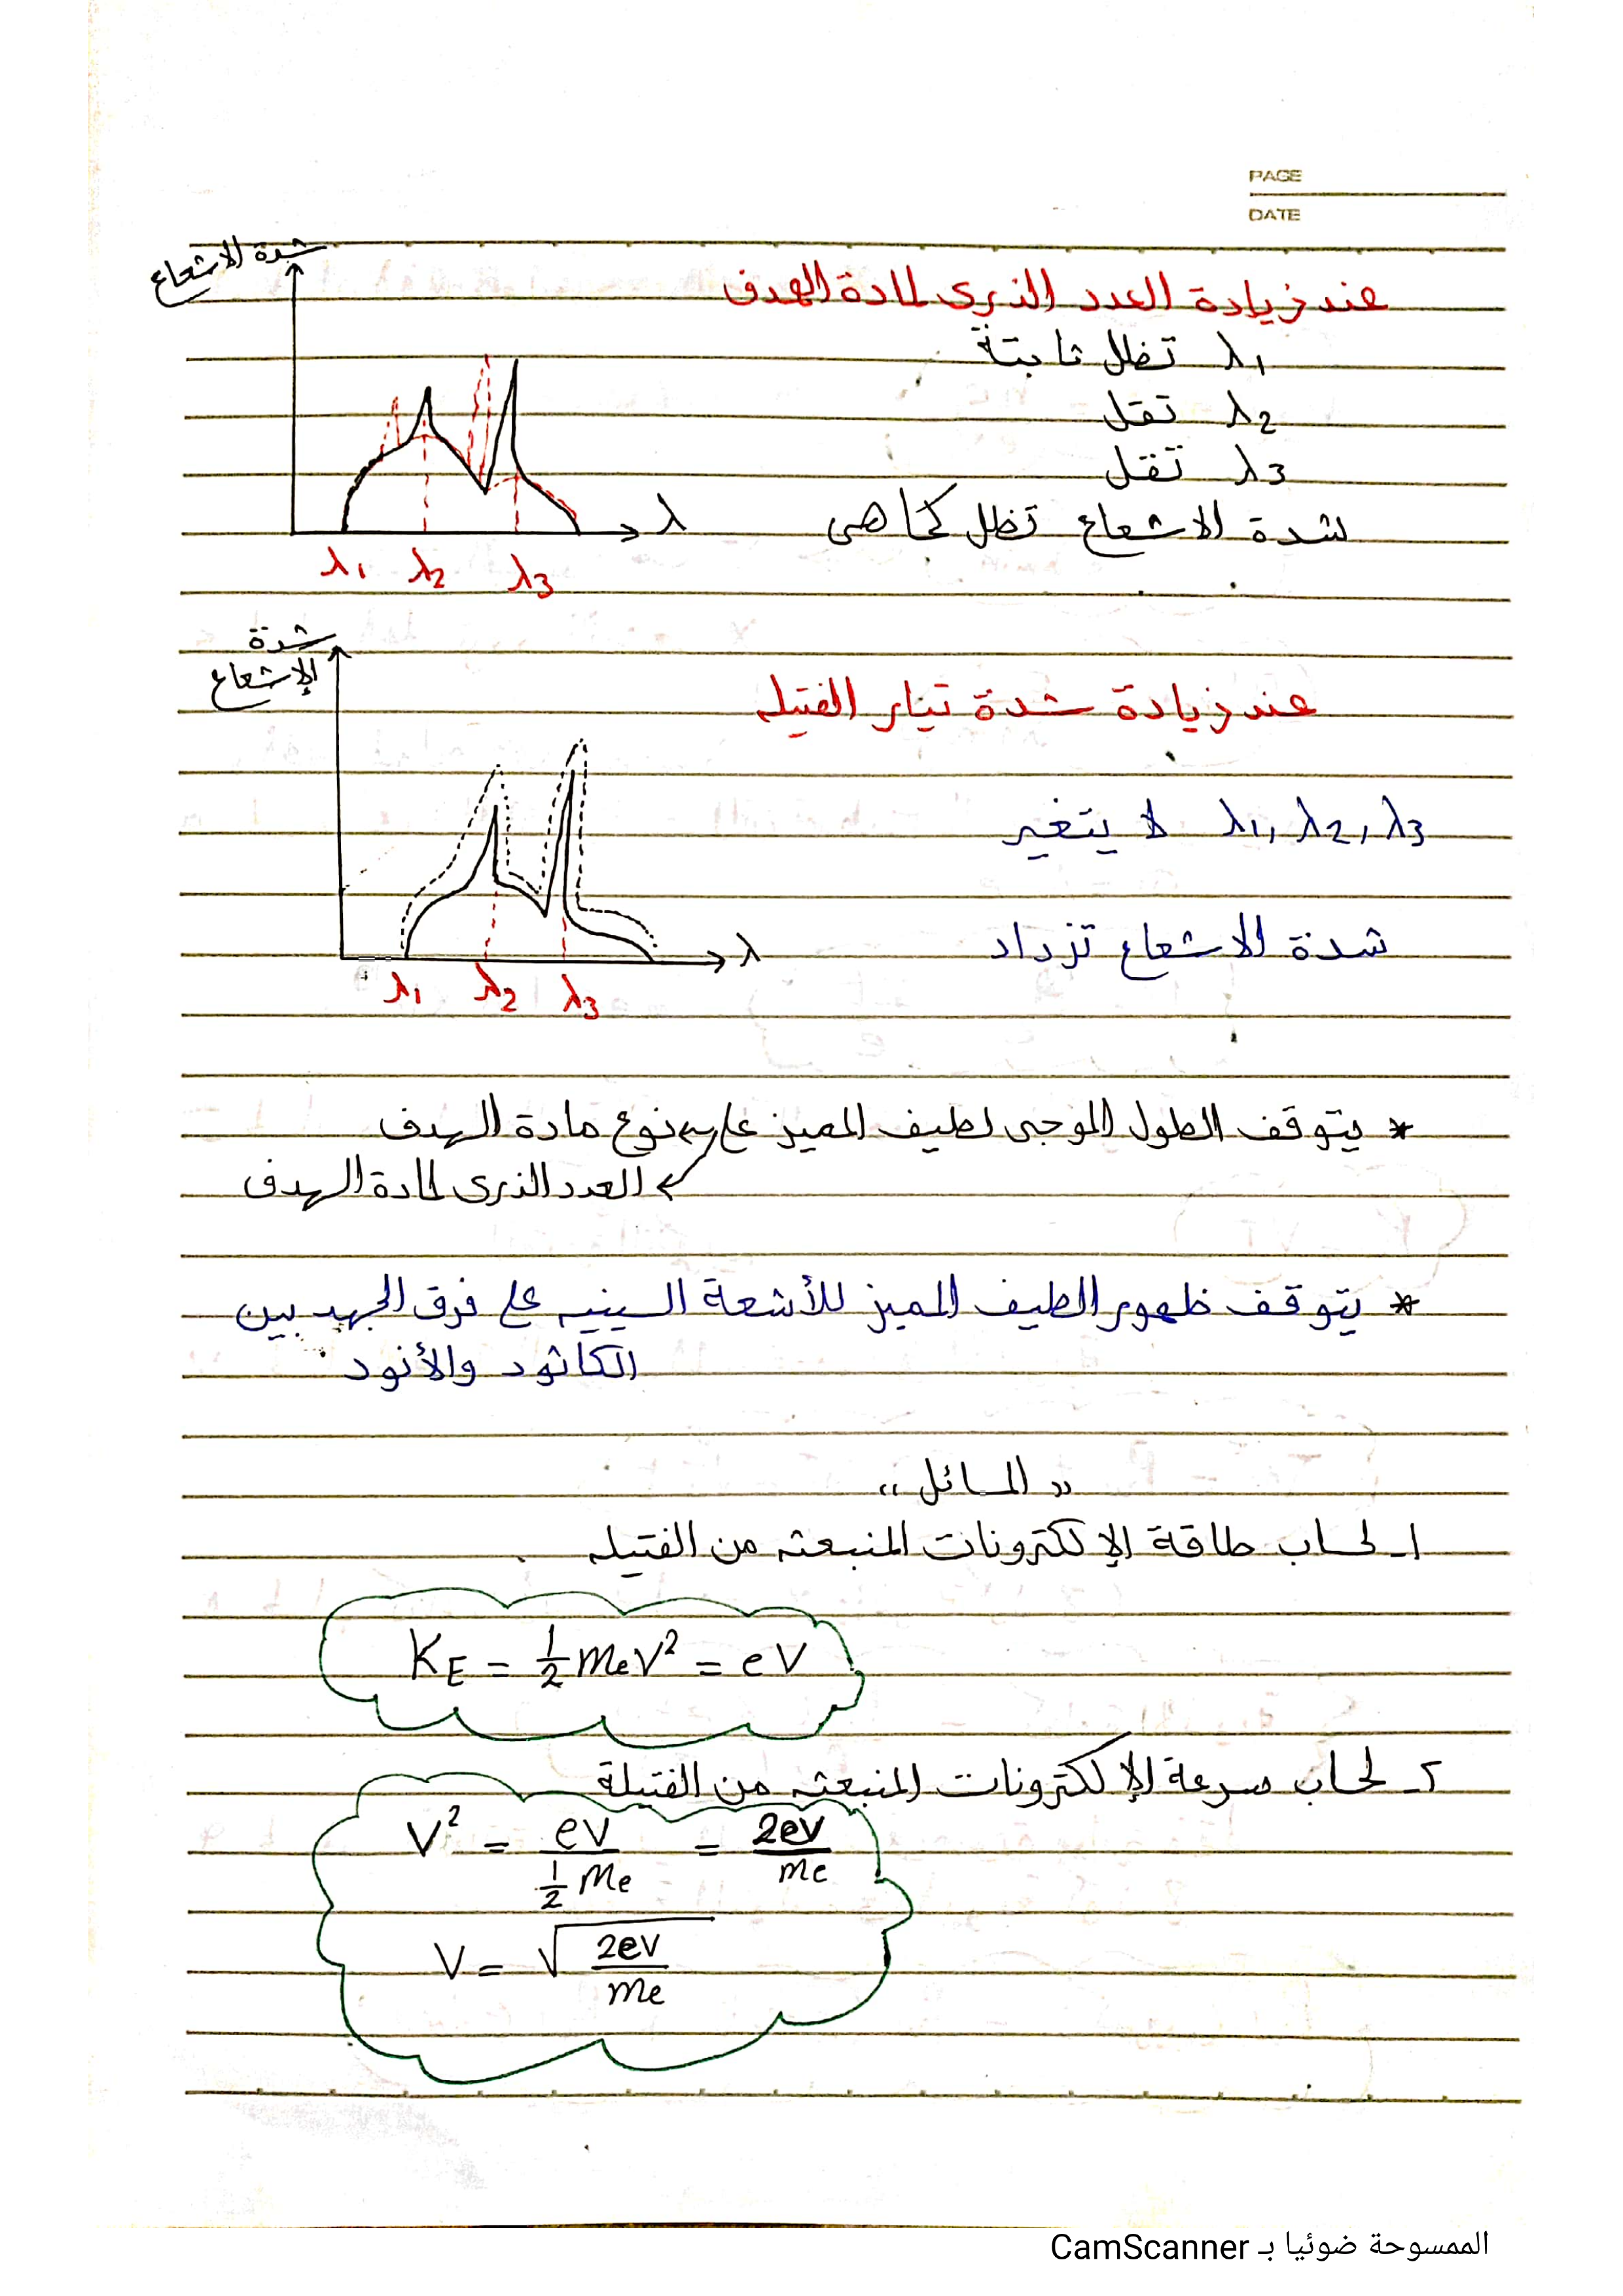 PAGE
DATE
شدة الاشعاع
عند زيادة العدد الذرى لمادة الهدف
λ1 تظل ثابتة
λ2 تقل
λ3 تقل
شدة الاشعاع تظل كما هى
λ
λ1 λ2 λ3
شدة
الإشعاع
عند زيادة شدة تيار الفتيله
λ1, λ2, λ3 لا يتغير
شدة الاشعاع تزداد
λ
λ1 λ2 λ3
* يتوقف الطول الموجى لطيف المميز على نوع مادة الهدف
العدد الذرى لمادة الهدف
* يتوقف ظهور الطيف المميز للأشعة السينيه على فرق الجهد بين
الكاثود والأنود
" المسائل "
١- لحساب طاقة الإلكترونات المنبعثه من الفتيله
KE = 1/2 meV² = eV
٢- لحساب سرعة الإلكترونات المنبعثه من الفتيلة
V² = eV / 1/2 me = 2eV / me
V = √ 2eV / me
الممسوحة ضوئيا بـ CamScanner